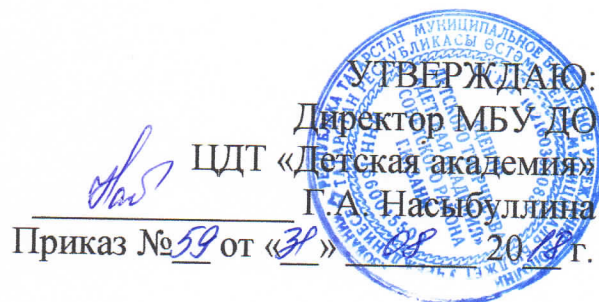 УТВЕРЖДАЮ:
Директор МБУ ДО
ЦДТ «Детская академия»
Г.А. Насыбуллина
Приказ №59 от «31» 08 2018 г.